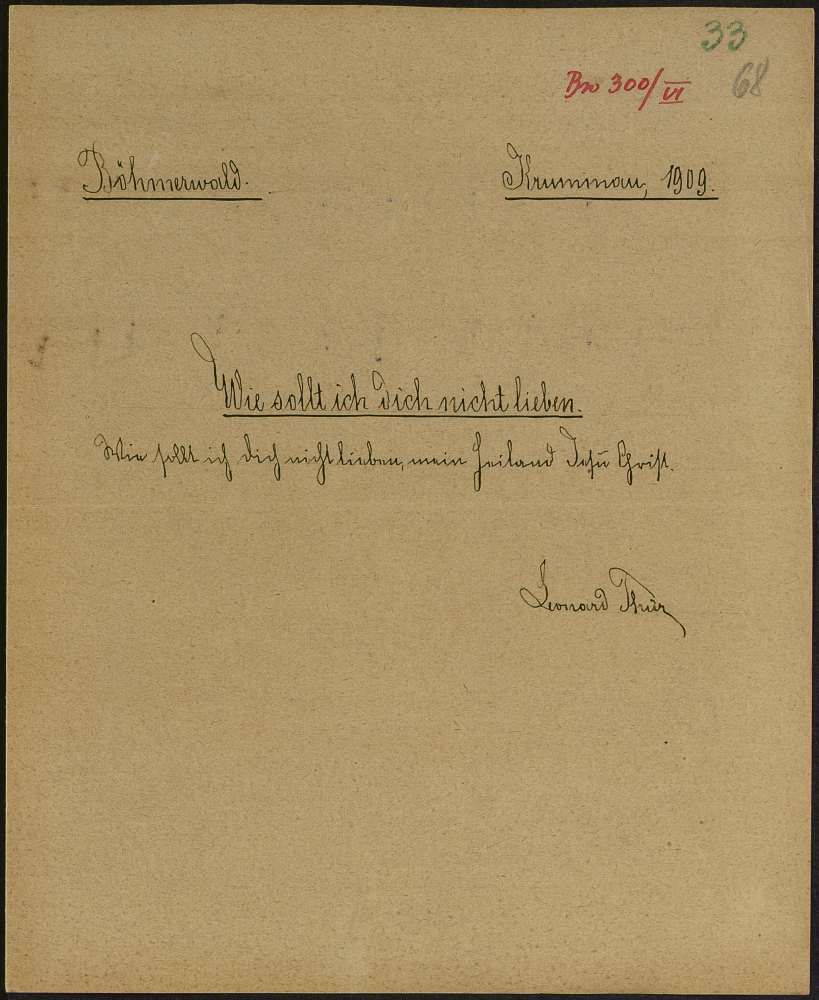 33
Bw 300/VI
68
Böhmerwald.
Krummau, 1909.
Wie sollt ich Dich nicht lieben.
Wie sollt ich Dich nicht lieben, mein Heiland Jesu Christ.
Leonard Thür